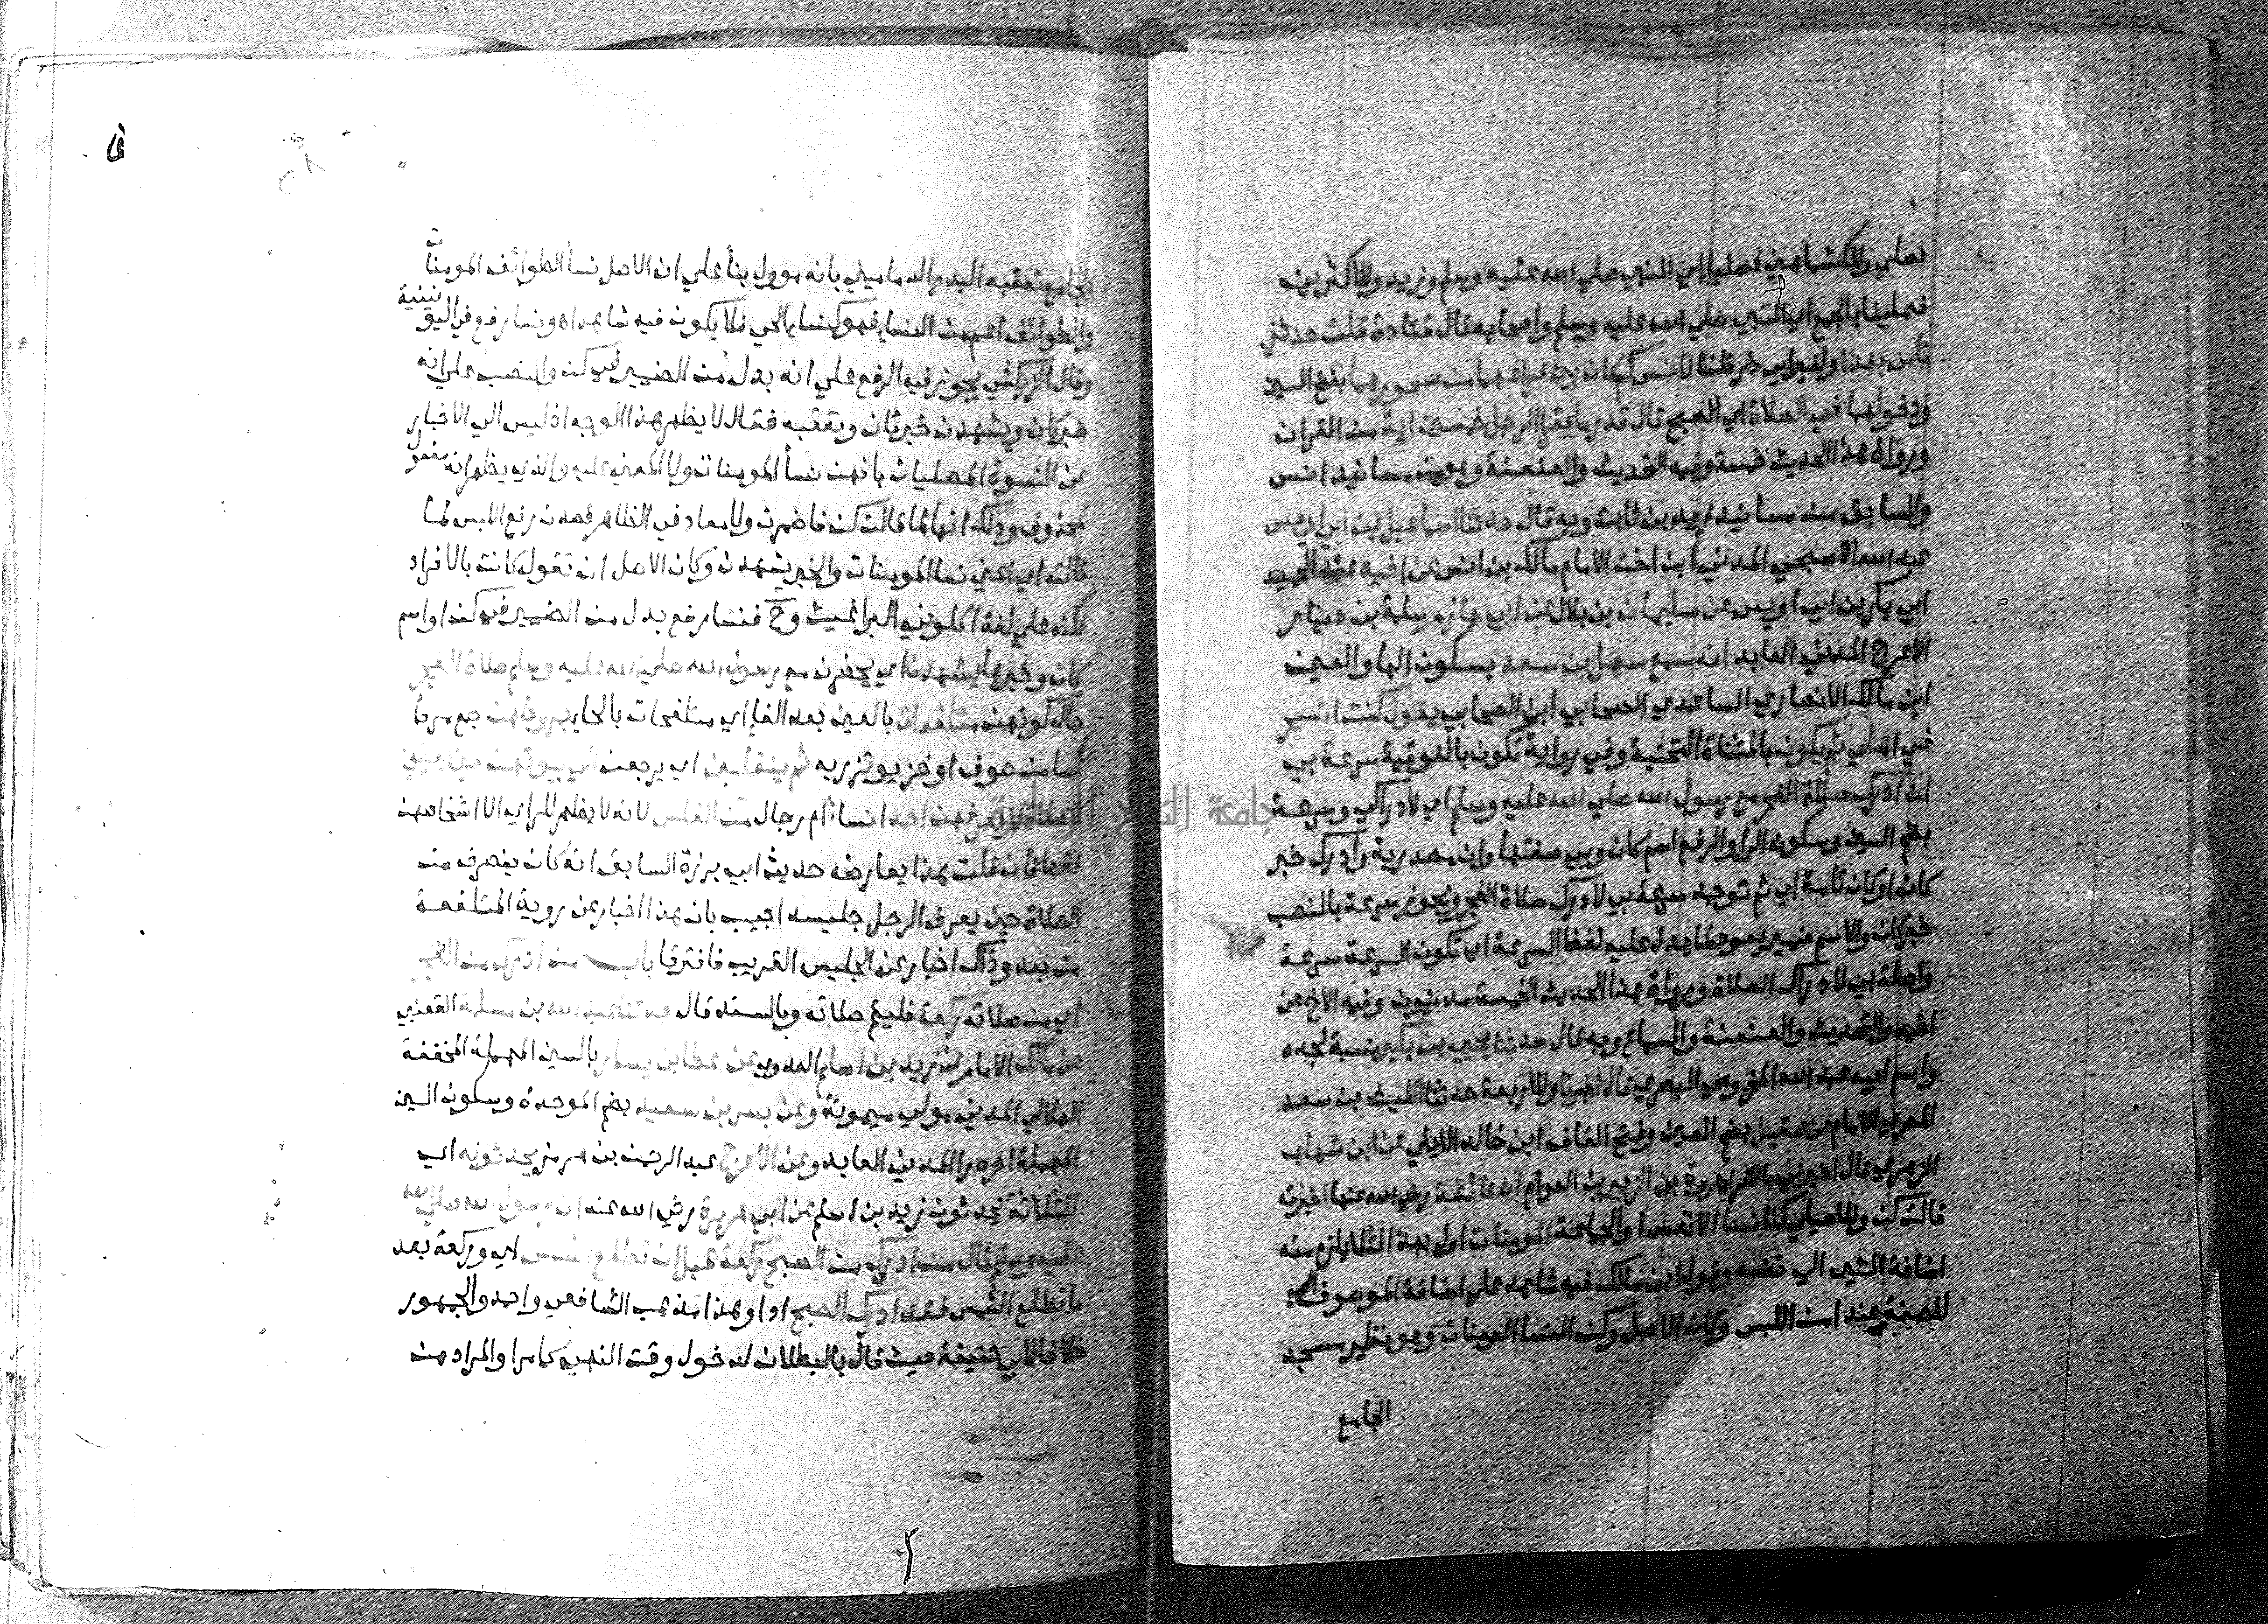 فصلي وللكشميهني فصليا اي النبي صلي الله عليه وسلم وزيد وللاكثرين
فصلينا بالجمع اي النبي صلي الله عليه وسلم واصحابه قال قتادة قلت
لانس كم كان بين فراغهما من سحورهما بفتح السين
ودخولهما في الصلاة اي الصبح قال قدر ما يقرا الرجل خمسين اية من القران
ورواة هذا الحديث خمسة وفيه التحديث والعنعنة وهو من مسانيد انس
والسابق من مسانيد زيد بن ثابت وبه قال حدثنا اسماعيل بن ابي اويس
عبد الله الاصبحي المدني ابن اخت الامام مالك بن انس عن اخيه عبد الحميد
ابي بكر بن ابي اويس عن سليمان بن بلال عن ابي حازم سلمة بن دينار
الاعرج المدني العابد انه سمع سهل بن سعد بسكون الها والعين
ابن مالك الانصاري الساعدي الصحابي ابن الصحابي يقول كنت اتسحر
في اهلي ثم يكون بالمثناة التحتية وفي رواية تكون بالفوقية سرعة بي
ان ادرك صلاة الفجر مع رسول الله صلي الله عليه وسلم اي لادراكي وسرعة
بضم السين وسكون الرا والرفع اسم كان وبي صفتها وان مصدرية وادرك خبر
كان او كان تامة اي ثم توجد سرعة بي لادرك صلاة الفجر ويجوز سرعة بالنصب
خبر كان والاسم ضمير يعود لما يدل عليه لفظ السرعة اي تكون السرعة سرعة
واصلة بي لادراك الصلاة ورواة هذا الحديث الخمسة مدنيون وفيه الاخ عن
اخيه والتحديث والعنعنة والسماع وبه قال حدثنا يحيي بن بكير نسبة لجده
واسم ابيه عبد الله المخزومي البصري قال اخبرنا وللاربعة حدثنا الليث بن سعد
المصري الامام عن عقيل بضم العين وفتح القاف ابن خالد الايلي عن ابن شهاب
الزهري قال اخبرني بالافراد عروة بن الزبير بن العوام ان عائشة رضي الله عنها اخبرته
قالت كن وللاصيلي كنا نسا الانفس او الجماعة المومنات اول بهذا لئلا يلزم منه
اضافة الشي الي نفسه وقول ابن مالك فيه شاهد علي اضافة الموصوف
للصفة عند امن اللبس وكان الاصل وكن النسا المومنات وهو نظير مسجد
الجامع
الجامع تعقبه البدر الدماميني بانه موول بنا علي ان الاصل نسا الطوائف المومنات
والطوائف اعم من النسا فهو كنسا الحي فلا يكون فيه شاهد اه ونسا رفع في اليونينية
وقال الزركشي يجوز فيه الرفع علي انه بدل من الضمير في كن والنصب علي انه
خبر كان ويشهدن خبر ثان وتعقبه فقال لا يظهر هذا الوجه اذ ليس الي الاخبار
عن النسوة المصليات بانهن نسا المومنات ولا المعني عليه والذي يظهر انه مفعول
لمحذوف وذلك انها لما قالت كن فاضمرت ولا معاد في الظاهر قصدت رفع اللبس لما
قالته اي اعني نسا المومنات والخبر يشهدن وكان الاصل ان تقول كانت بالافراد
لكنه علي لغة اكلوني البراغيث وح فنسا رفع بدل من الضمير في كن او اسم
كان وخبرها يشهدن اي يحضرن مع رسول الله صلي الله عليه وسلم صلاة الفجر
حال كونهن متلفعات بالعين بعد الفا اي متلفحات بالحا بمروطهن جمع مرط
كسا من صوف او خز يوتزر به ثم ينقلبن اي يرجعن الي بيوتهن حين يقضين
الصلاة لا يعرفهن احد انسا ام رجال من الغلس لانه لا يظهر للراي الا اشخاصهن
فقط فان قلت هذا يعارضه حديث ابي برزة السابق انه كان ينصرف من
الصلاة حين يعرف الرجل جليسه اجيب بان هذا اخبار عن روية المتلفعة
من بعد وذاك اخبار عن الجليس القريب فافترقا باب من ادرك من الفجر
اي من صلاته ركعة فليتم صلاته وبالسند قال حدثنا عبد الله بن مسلمة القعنبي
عن مالك الامام عن زيد بن اسلم العدوي عن عطا بن يسار بالسين المهملة المخففة
الهلالي المدني مولي ميمونة وعن بسر بن سعيد بضم الموحدة وسكون السين
المهملة اخره را المدني العابد وعن الاعرج عبد الرحمن بن هرمز يحدثونه اي
الثلاثة يحدثون زيد بن اسلم عن ابي هريرة رضي الله عنه ان رسول الله صلي الله
عليه وسلم قال من ادرك من الصبح ركعة قبل ان تطلع الشمس اي وركعة بعد
ما تطلع الشمس فقد ادرك الصبح ادا وهذا مذهب الشافعي واحمد والجمهور
خلافا لابي حنيفة حيث قال بالبطلان لدخول وقت النهي كما مر والمراد من